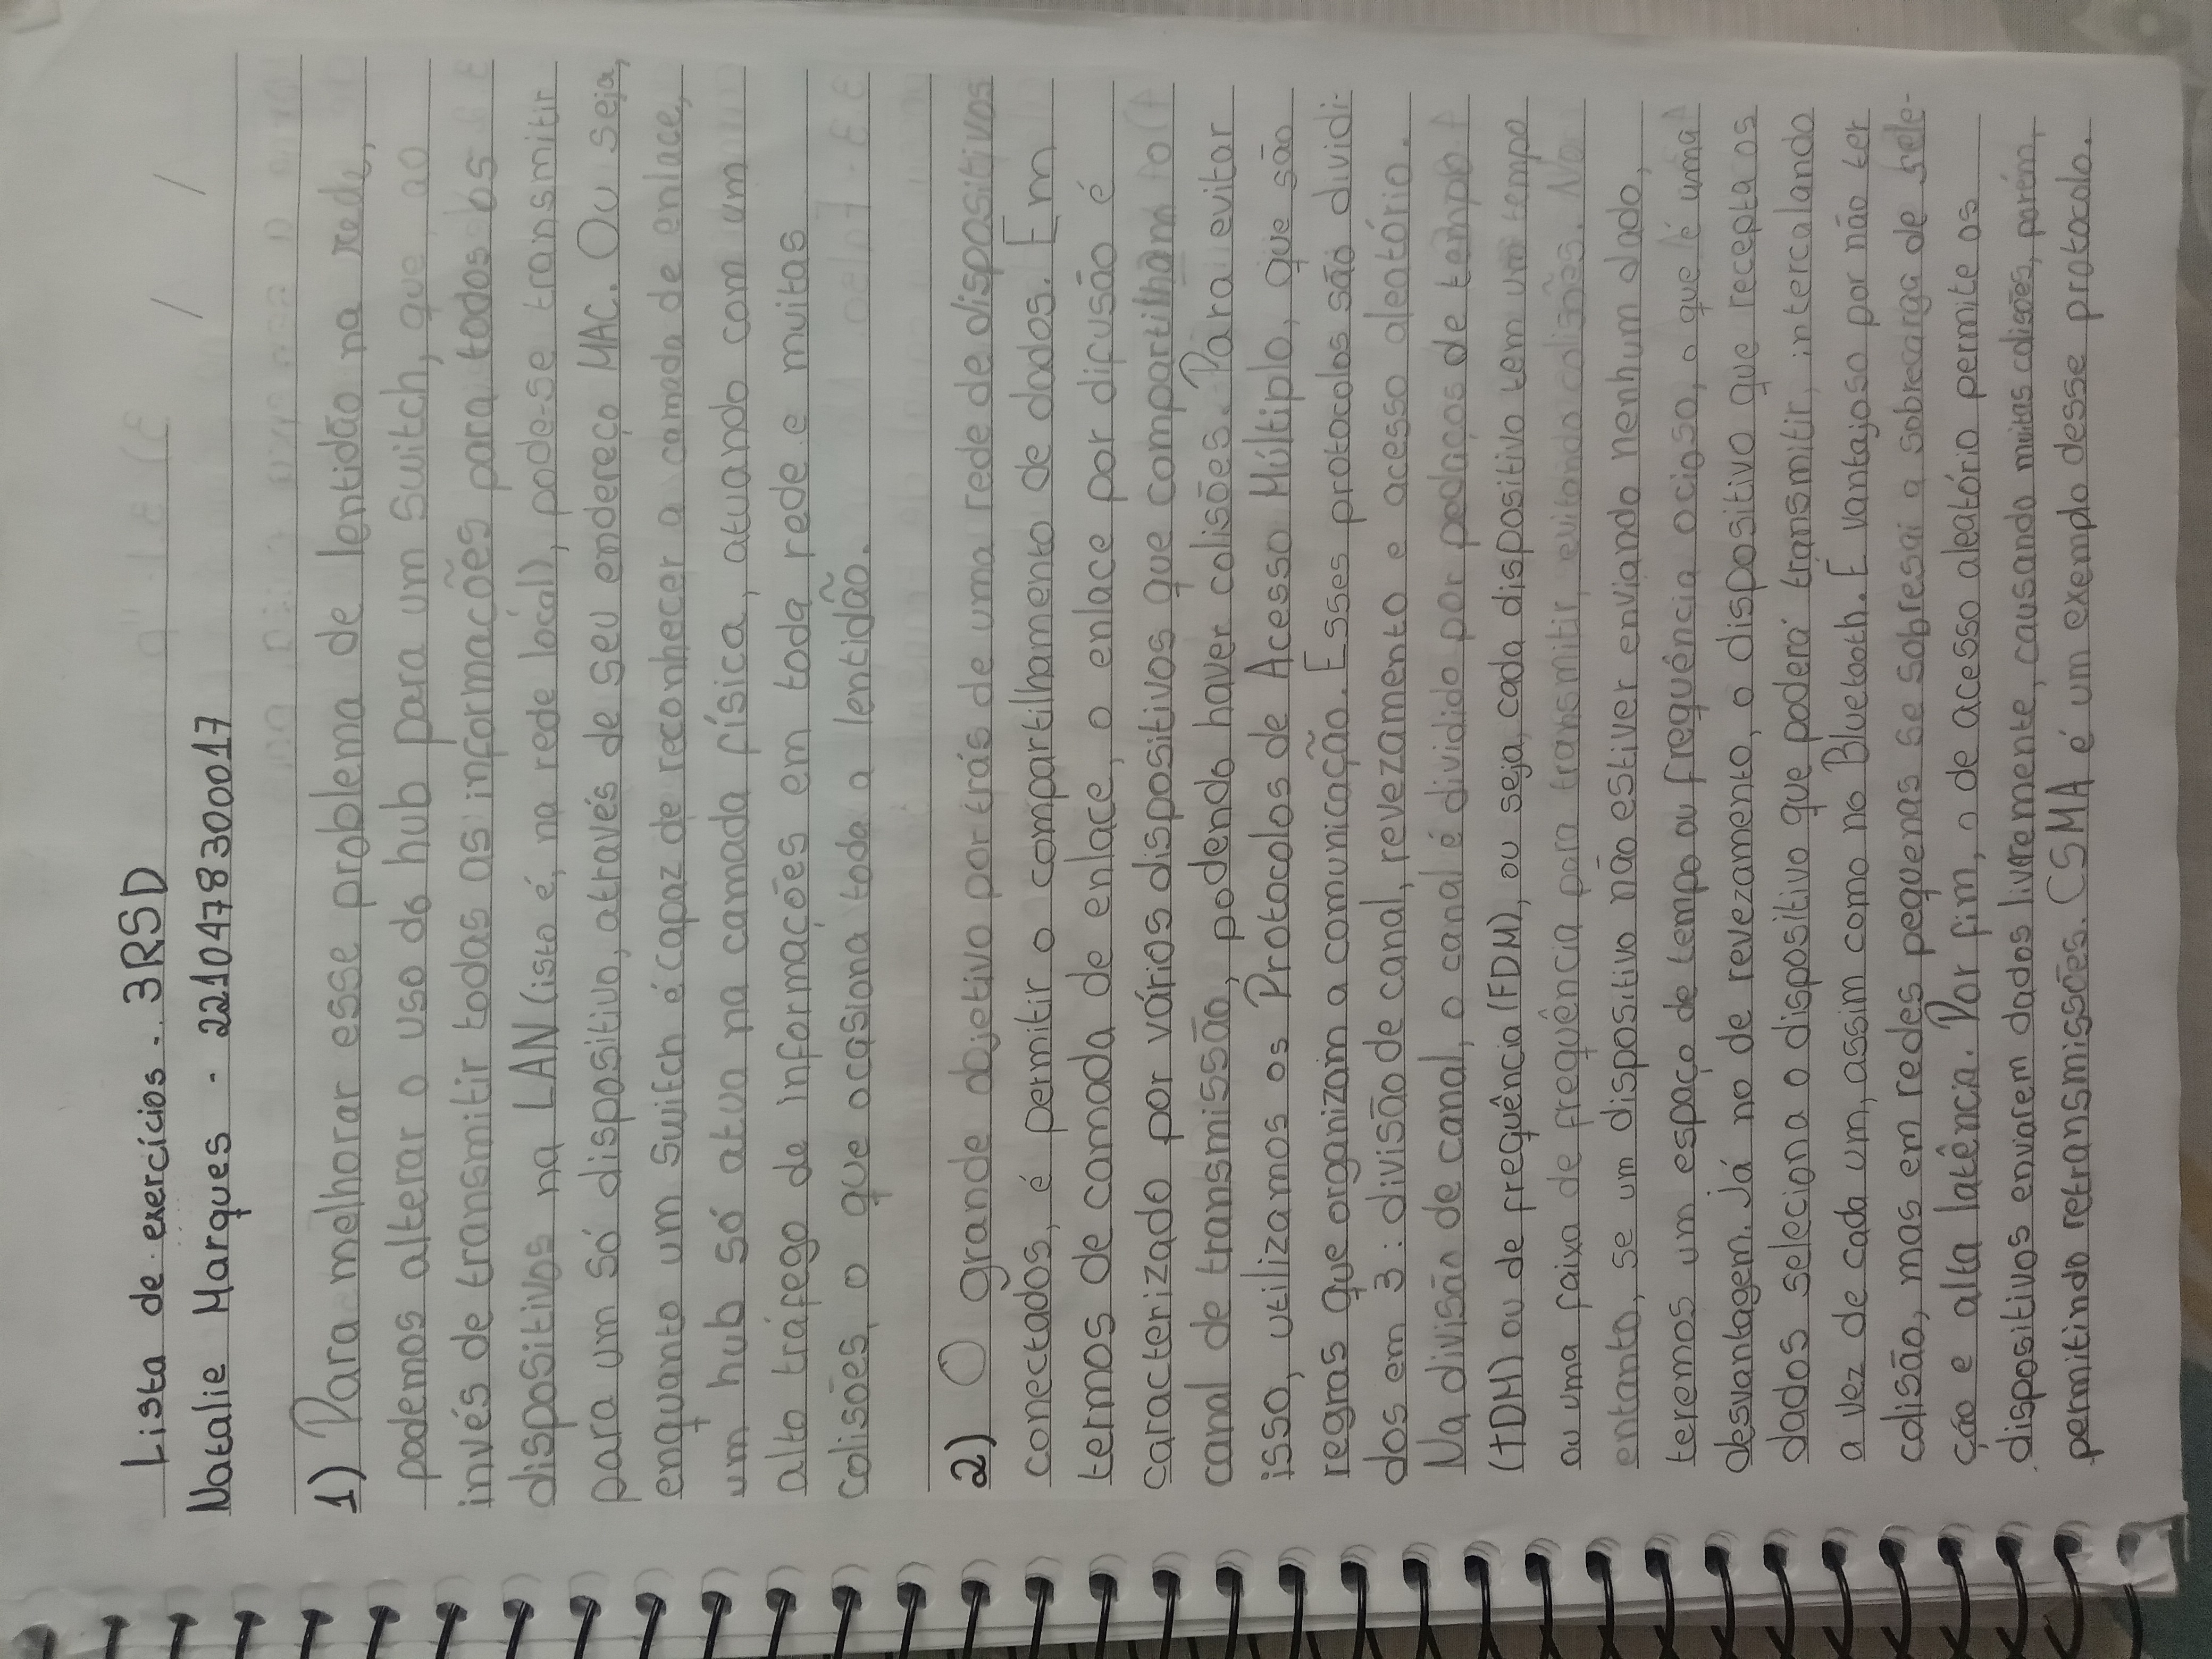 Lista de exercícios - 3RSD
/ /
Natalie Marques - 2210478300017
1) Para melhorar esse problema de lentidão na rede,
podemos alterar o uso do hub para um Switch, que, ao
invés de transmitir todas as informações para todos os
dispositivos na LAN (isto é, na rede local), pode-se transmitir
para um só dispositivo, através de seu endereço MAC. Ou seja,
enquanto um Switch é capaz de reconhecer a camada de enlace,
um hub só atua na camada física, atuando com um
alto tráfego de informações em toda rede e muitas
colisões, o que ocasiona toda a lentidão.
2) O grande objetivo por trás de uma rede de dispositivos
conectados, é permitir o compartilhamento de dados. Em
termos de camada de enlace, o enlace por difusão é
caracterizado por vários dispositivos que compartilham o
canal de transmissão, podendo haver colisões. Para evitar
isso, utilizamos os Protocolos de Acesso Múltiplo, que são
regras que organizam a comunicação. Esses protocolos são dividi-
dos em 3: divisão de canal, revezamento e acesso aleatório.
Na divisão de canal, o canal é dividido por pedaços de tempo
(TDM) ou de frequência (FDM), ou seja, cada dispositivo tem um tempo
ou uma faixa de frequência para transmitir, evitando colisões. No
entanto, se um dispositivo não estiver enviando nenhum dado,
teremos um espaço de tempo ou frequência ocioso, o que é uma
desvantagem. Já no de revezamento, o dispositivo que recepta os
dados seleciona o dispositivo que poderá transmitir, intercalando
a vez de cada um, assim como no Bluetooth. É vantajoso por não ter
colisão, mas em redes pequenas se sobresai a sobrecarga de sele-
ção e alta latência. Por fim, o de acesso aleatório permite os
dispositivos enviarem dados livremente, causando muitas colisões, porém,
permitindo retransmissões. CSMA é um exemplo desse protocolo.